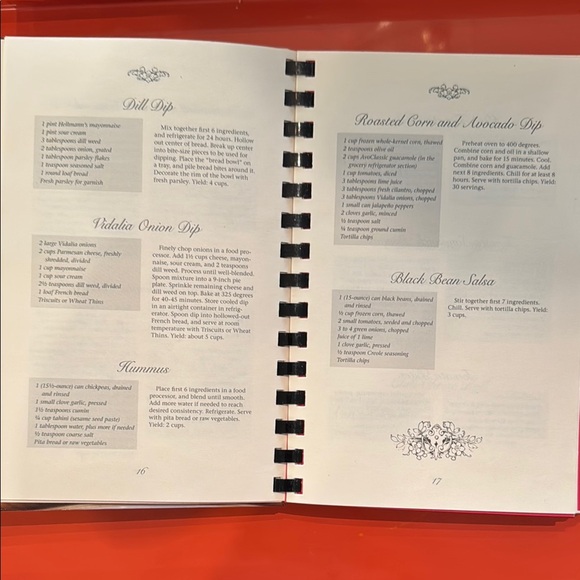 Dill Dip
1 pint Hellmann's mayonnaise
1 pint sour cream
3 tablespoons dill weed
2 tablespoons onion, grated
1 tablespoon parsley flakes
1 teaspoon seasoned salt
1 round loaf bread
Fresh parsley for garnish
Mix together first 6 ingredients,
and refrigerate for 24 hours. Hollow
out center of bread. Break up center
into bite-size pieces to be used for
dipping. Place the "bread bowl" on
a tray, and pile bread bites around it.
Decorate the rim of the bowl with
fresh parsley. Yield: 4 cups.
Vidalia Onion Dip
2 large Vidalia onions
2 cups Parmesan cheese, freshly
shredded, divided
1 cup mayonnaise
1 cup sour cream
2½ teaspoons dill weed, divided
1 loaf French bread
Triscuits or Wheat Thins
Finely chop onions in a food pro-
cessor. Add 1½ cups cheese, mayon-
naise, sour cream, and 2 teaspoons
dill weed. Process until well-blended.
Spoon mixture into a 9-inch pie
plate. Sprinkle remaining cheese and
dill weed on top. Bake at 325 degrees
for 40-45 minutes. Store cooled dip
in an airtight container in refrig-
erator. Spoon dip into hollowed-out
French bread, and serve at room
temperature with Triscuits or Wheat
Thins. Yield: about 5 cups.
Hummus
1 (15½-ounce) can chickpeas, drained
and rinsed
1 small clove garlic, pressed
1½ teaspoons cumin
¼ cup tahini (sesame seed paste)
1 tablespoon water, plus more if needed
½ teaspoon coarse salt
Pita bread or raw vegetables
Place first 6 ingredients in a food
processor, and blend until smooth.
Add more water if needed to reach
desired consistency. Refrigerate. Serve
with pita bread or raw vegetables.
Yield: 2 cups.
16
Roasted Corn and Avocado Dip
1 cup frozen whole-kernel corn, thawed
2 teaspoons olive oil
2 cups AvoClassic guacamole (in the
grocery refrigerator section)
1 cup tomatoes, diced
3 tablespoons lime juice
3 tablespoons fresh cilantro, chopped
3 tablespoons Vidalia onions, chopped
1 small can jalapeño peppers
2 cloves garlic, minced
½ teaspoon salt
¼ teaspoon ground cumin
Tortilla chips
Preheat oven to 400 degrees.
Combine corn and oil in a shallow
pan, and bake for 15 minutes. Cool.
Combine corn and guacamole. Add
next 8 ingredients. Chill for at least 8
hours. Serve with tortilla chips. Yield:
30 servings.
Black Bean Salsa
1 (15-ounce) can black beans, drained
and rinsed
½ cup frozen corn, thawed
2 small tomatoes, seeded and chopped
3 to 4 green onions, chopped
Juice of 1 lime
1 clove garlic, pressed
½ teaspoon Creole seasoning
Tortilla chips
Stir together first 7 ingredients.
Chill. Serve with tortilla chips. Yield:
3 cups.
17